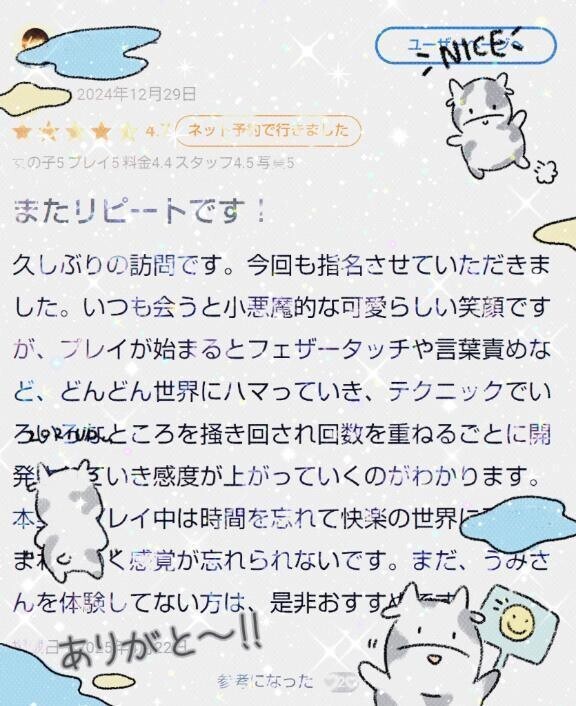 ユーザー
NICE
2024年12月29日
4.7
ネット予約で行きました
女の子5 プレイ5 料金4.4 スタッフ4.5 写真5
またリピートです！
久しぶりの訪問です。今回も指名させていただきま
した。いつも会うと小悪魔的な可愛らしい笑顔です
が、プレイが始まるとフェザータッチや言葉責めな
ど、どんどん世界にハマっていき、テクニックでい
ろ なところを掻き回され回数を重ねるごとに開
発 ていき感度が上がっていくのがわかります。
本 レイ中は時間を忘れて快楽の世界に
まれ く感覚が忘れられないです。まだ、うみさ
んを体験してない方は、是非おすすめです
ありがと〜!!
参考になった